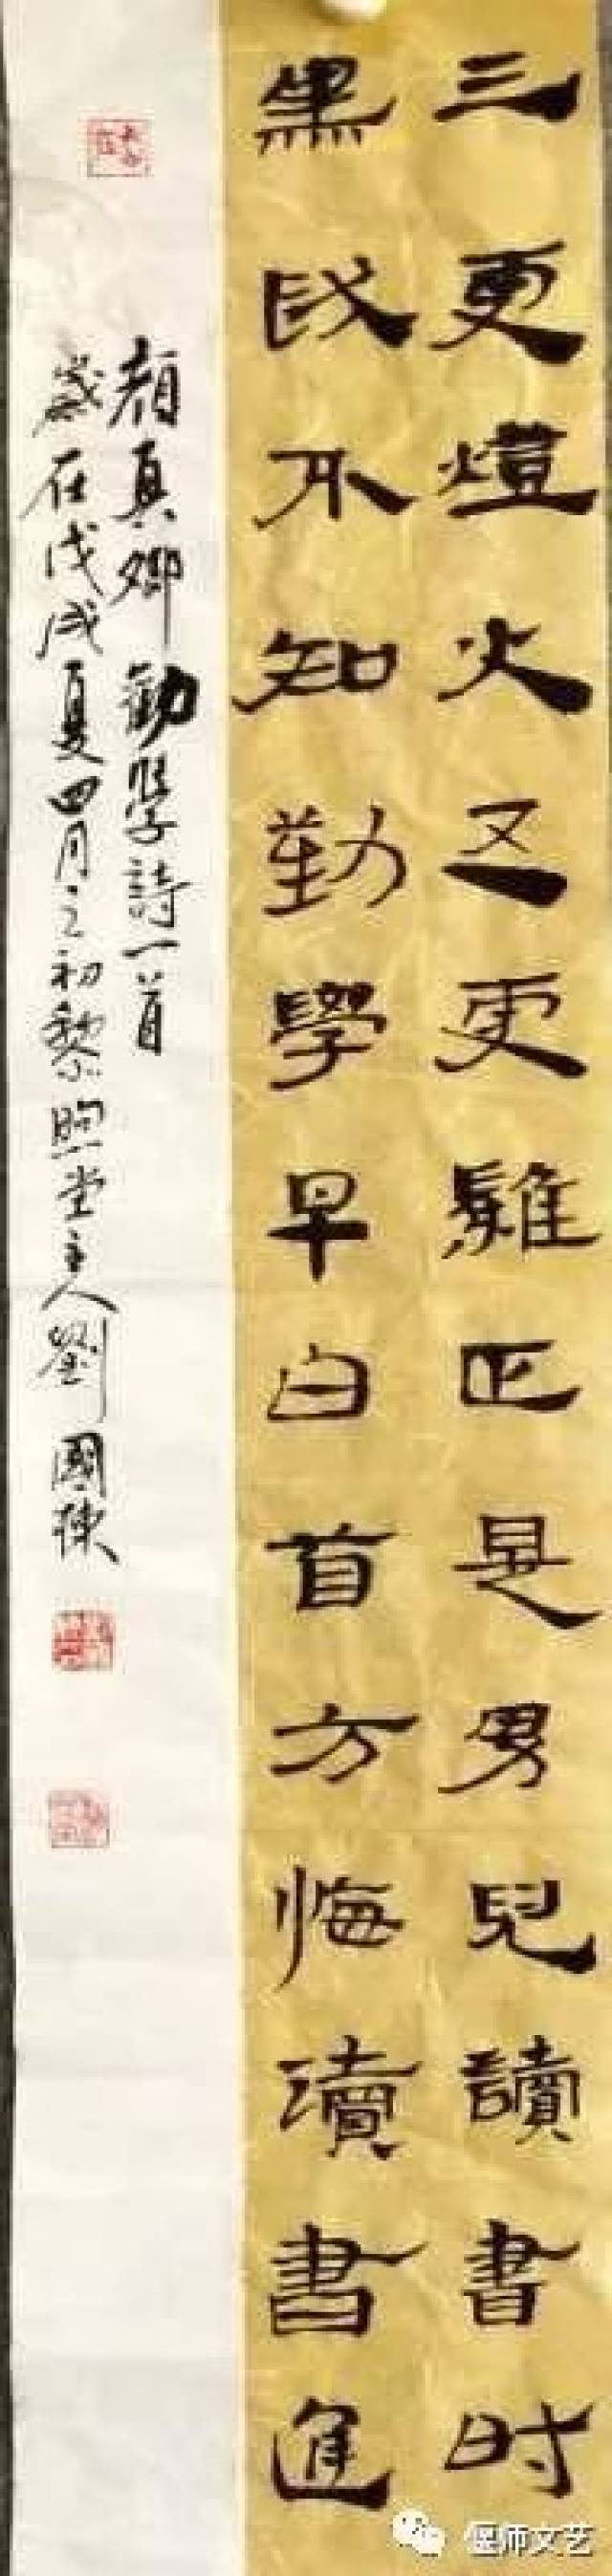 三更燈火五更雞正是男兒讀書时
黑政不知勤學早白首方悔讀書遲
顏真卿勸學詩一首
歲在戊戌夏四月之初黎照堂主人劉國棟
偃师文艺